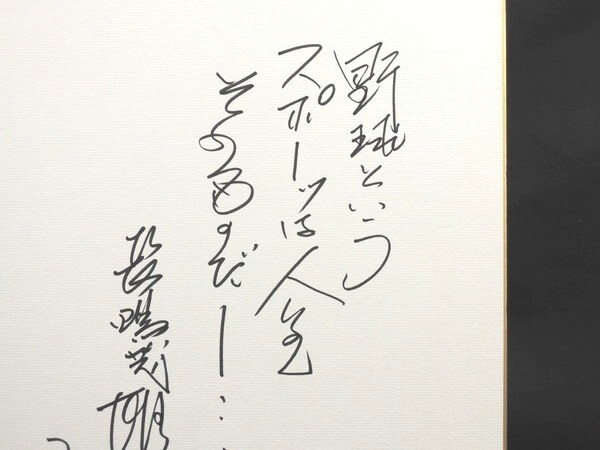 野球という
スポーツは人生
そのものだ!‥
長嶋茂雄